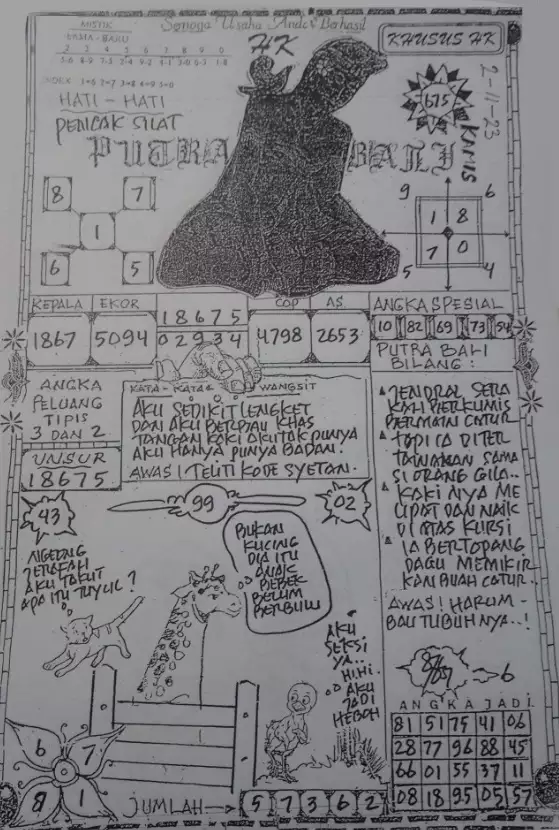 Semoga Usaha Anda Berhasil
MISTIK
LAMA - BARU
2 3 4 5 6 7 8 9 0
INDEX 1=6 2=7 3=8 4=9 5=0
HK
KHUSUS HK
2-11-23
KAMIS
675
HATI - HATI
PENCAK SILAT
PUTRA BALI
8 7
1
6 5
9 6
1 8
7 0
5 4
KEPALA EKOR
1867 5094
18675
02934
COP AS
4798 2653
ANGKA SPESIAL
10 82 69 73 54
ANGKA
PELUANG
TIPIS
3 DAN 2
UNSUR
18675
KATA - KATA WANGSIT
AKU SEDIKIT LENGKET
DAN AKU BERBAU KHAS
TANGAN KAKI AKU TAK PUNYA
AKU HANYA PUNYA BADAN.
AWAS! TELITI KODE SYETAN.
PUTRA BALI
BILANG :
JENDRAL SETA
KALI BERKUMIS
BERMAIN CATUR
TAPI IA DITER
TAWAKAN SAMA
SI ORANG GILA..
KAKI NYA ME
LIPAT DAN NAIK
DI ATAS KURSI
IA BERTOPANG
DAGU MEMIKIR
KAN BUAH CATUR..
AWAS! HARUM -
BAU TUBUHNYA..!
43
99
02
NGEONG
JERAPAH
AKU TAKUT
APA ITU TUYUL ?
BUKAN
KUCING
DIA ITU
ANAK
BEBEK
BELUM
BERBULU
AKU
SEKSI
YA..
HIHI.
AKU
JADI
HEBOH
6
6 7
8 1
JUMLAH → 5 7 3 6 2
ANGKA JADI
81 51 75 41 06
28 77 96 88 45
66 01 55 37 11
08 18 95 05 57